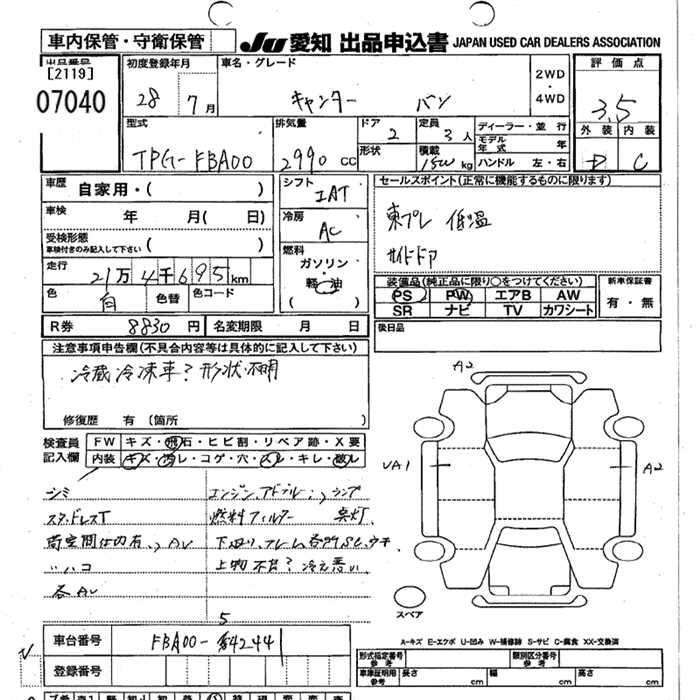 車内保管・守衛保管
JU 愛知 出品申込書 JAPAN USED CAR DEALERS ASSOCIATION
出品番号
[2119]
07040
初度登録年月
28 7月
車名・グレード
キャンター バン
2WD
・
4WD
評価点
3.5
外装 内装
D C
型式
TPG-FBA00
排気量
2990 CC
ドア
2
形状
定員
3人
積載
1500 kg
ディーラー・並行
モデル年式 年
ハンドル 左・右
車歴
自家用・( )
車検
年 月(日)
受検形態
車検付きのみ記入して下さい ( )
走行
21万4千695km
色
白
色替
色コード
シフト
IAT
冷房
AC
燃料
ガソリン
・
軽油
( )
セールスポイント(正常に機能するものに限ります)
東プレ 低温
サイドドア
装備品(純正品に限り○をつけてください)
PS PW エアB AW
SR ナビ TV カワシート
新車保証書
有・無
R券 8830円
名変期限 月 日
後日品
注意事項申告欄(不具合内容等は具体的に記入して下さい)
冷蔵冷凍車? 形状不明
修復歴 有 (箇所
検査員
記入欄
FW キズ・飛石・ヒビ割・リペア跡・X要
内装 キズ・汚レ・コゲ・穴・スレ・キレ・破レ
シミ
スタッドレスT
荷室間仕切有、AU
〃ハコ
各AU
エンジン、アドブルー、ランプ
燃料フィルター 異灯
下廻り、フレーム各所SC、ウキ
上物不良? 冷え悪い
A2
UA1
A2
スペア
A-キズ E-エクボ U-凹み W-補修跡 S-サビ C-腐食 XX-交換済
5
車台番号 FBA00-542441
登録番号
形式指定番号
参考
類別区分番号
参考
車庫証明用
参考
長さ cm
幅 cm
高さ cm